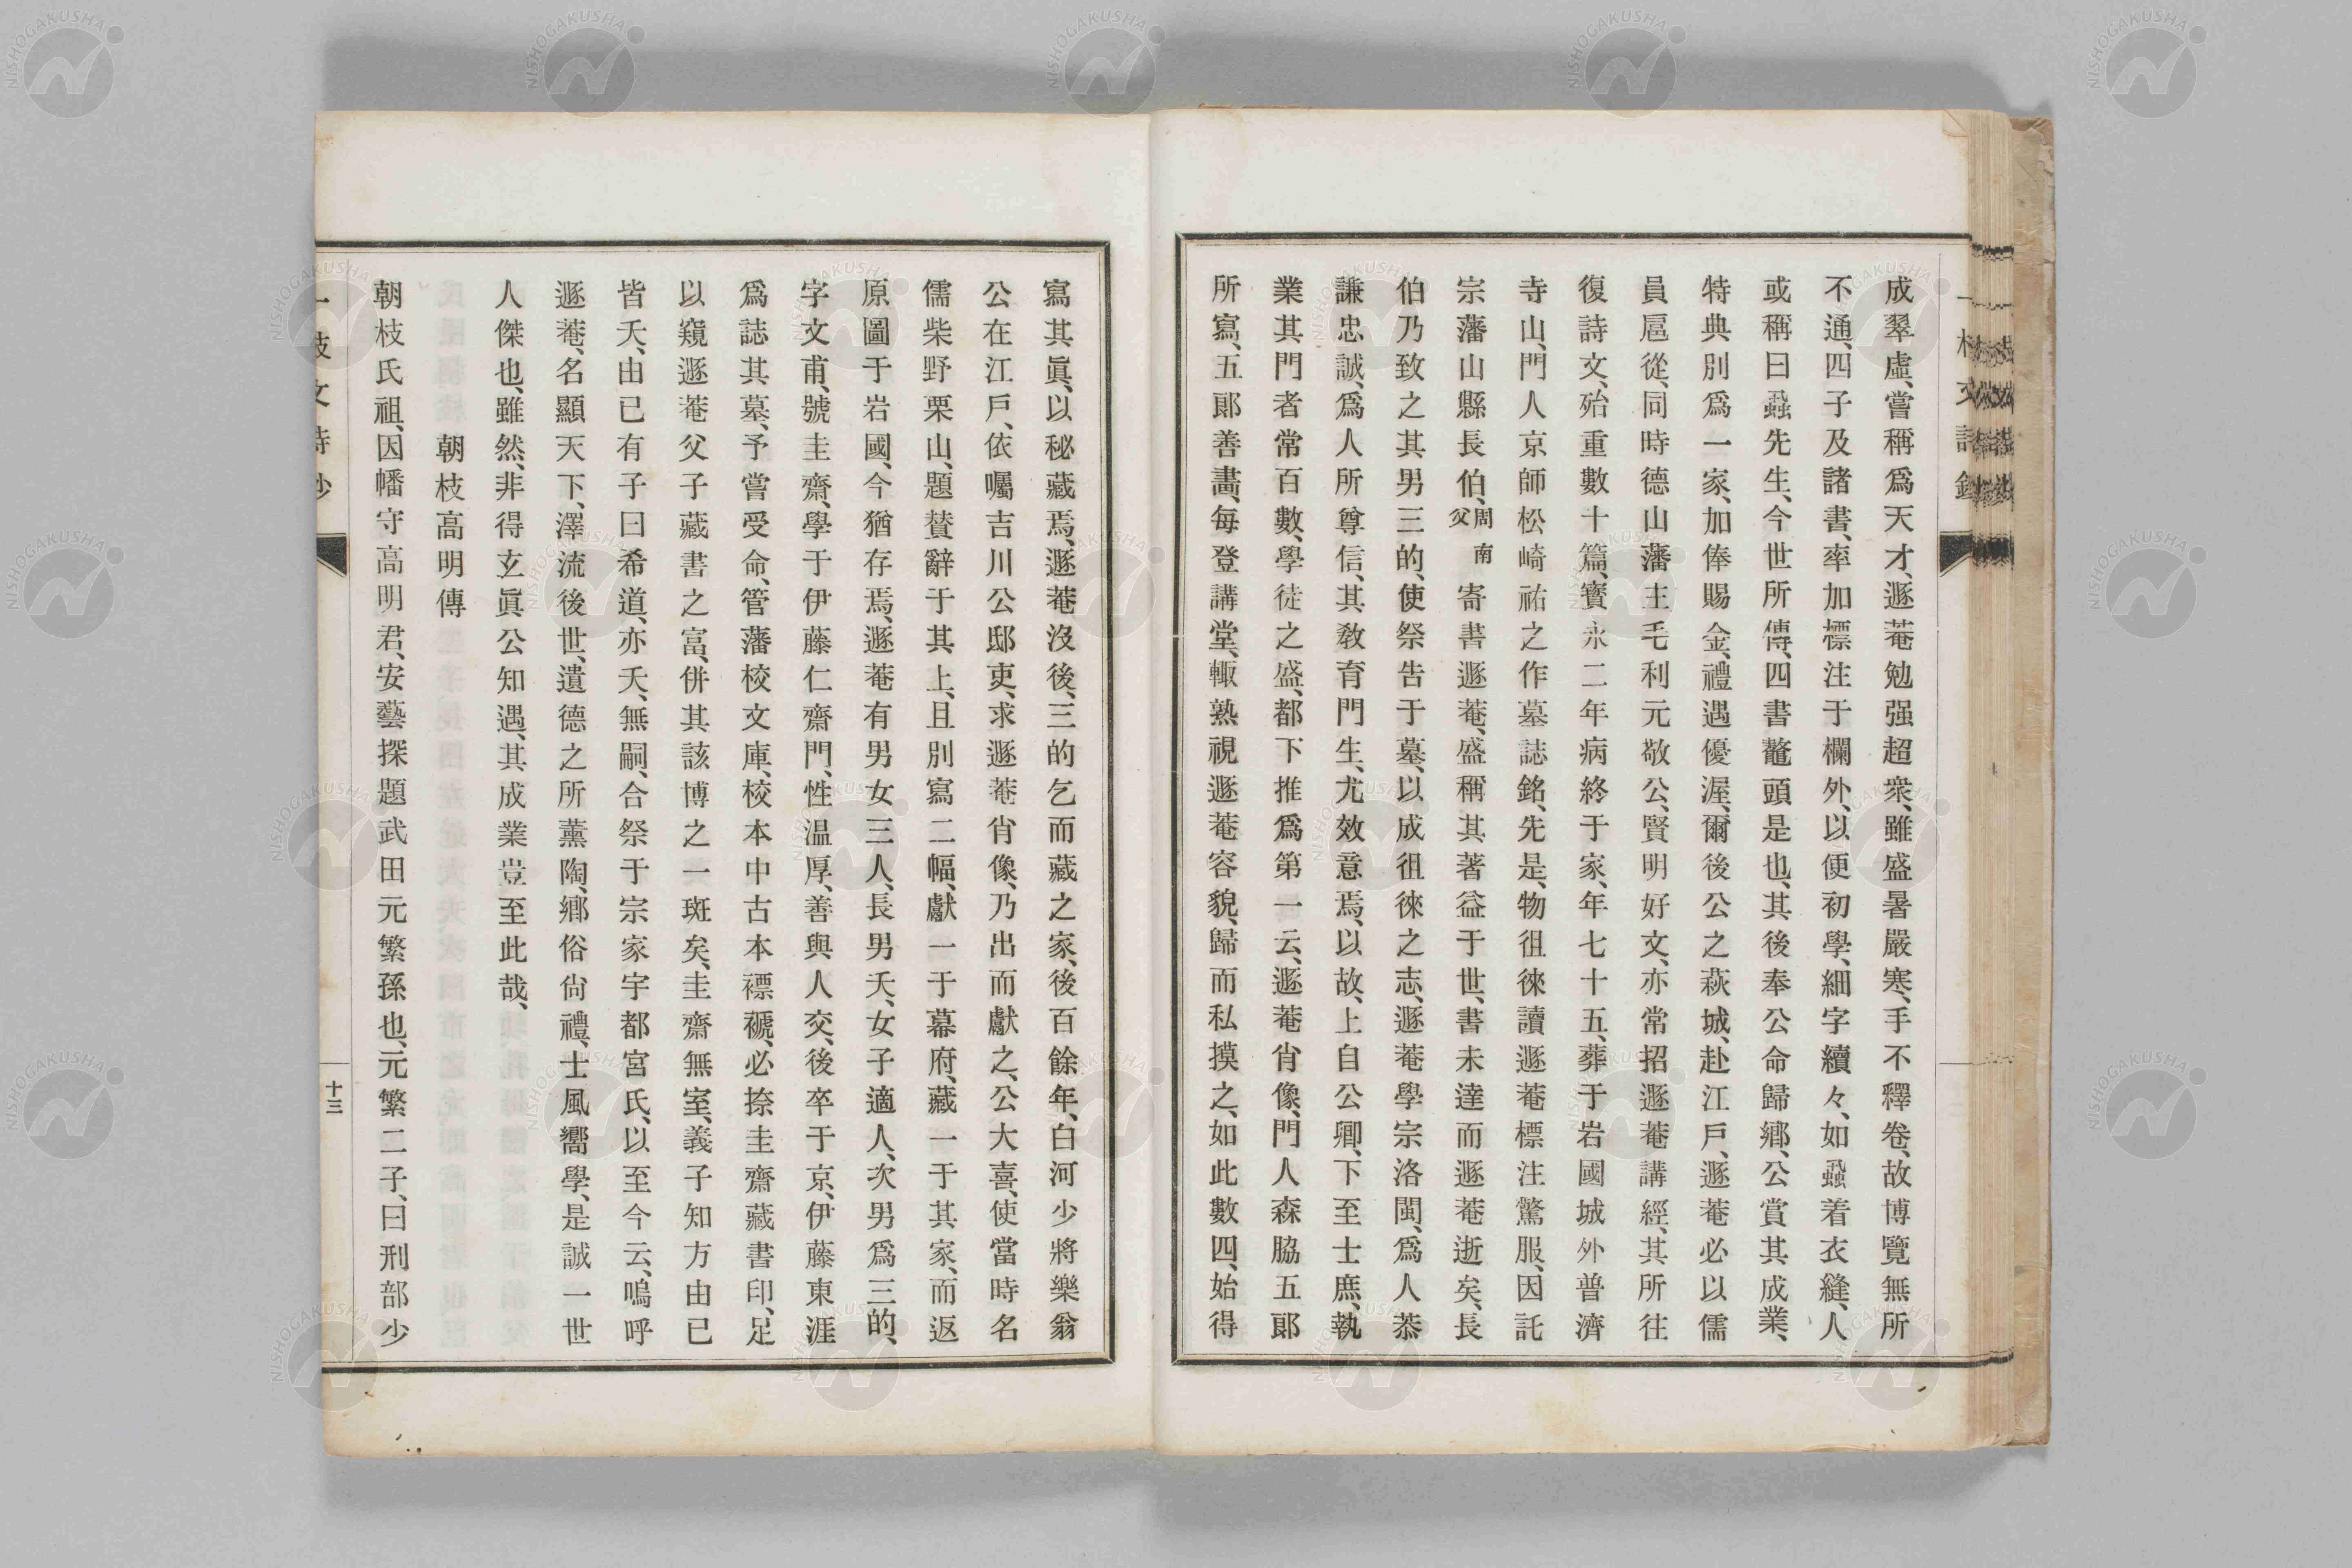 成翠虛、嘗稱爲天才、遯菴勉强超衆、雖盛暑嚴寒、手不釋卷、故博覽無所
不通、四子及諸書、率加標注于欄外、以便初學、細字續々、如蝨着衣縫、人
或稱曰蝨先生、今世所傳、四書鼇頭是也、其後奉公命歸鄉、公賞其成業、
特典別爲一家、加俸賜金、禮遇優渥、爾後公之萩城、赴江戶、遯菴必以儒
員扈從、同時德山藩主毛利元敬公、賢明好文、亦常招遯菴講經、其所往
復詩文、殆重數十篇、寶永二年病終于家、年七十五、葬于岩國城外普濟
寺山、門人京師松崎祐之作墓誌銘、先是、物徂徠讀遯菴標注驚服、因託
宗藩山縣長伯、周南父寄書遯菴、盛稱其著益于世、書未達而遯菴逝矣、長
伯乃致之其男三的、使祭告于墓、以成徂徠之志、遯菴學宗洛閩、爲人恭
謙忠誠、爲人所尊信、其敎育門生、尤效意焉、以故、上自公卿、下至士庶、執
業其門者常百數、學徒之盛、都下推爲第一云、遯菴肖像、門人森脇五郞
所寫、五郞善畵、每登講堂、輙熟視遯菴容貌、歸而私摸之、如此數四、始得
寫其眞、以秘藏焉、遯菴沒後、三的乞而藏之家、後百餘年、白河少將樂翁
公在江戶、依囑吉川公邸吏、求遯菴肖像、乃出而獻之、公大喜、使當時名
儒柴野栗山、題贊辭于其上、且別寫二幅、獻一于幕府、藏一于其家、而返
原圖于岩國、今猶存焉、遯菴有男女三人、長男夭、女子適人、次男爲三的、
字文甫、號圭齋、學于伊藤仁齋門、性温厚、善與人交、後卒于京、伊藤東涯
爲誌其墓、予嘗受命、管藩校文庫、校本中古本褾褫、必捺圭齋藏書印、足
以窺遯菴父子藏書之富、併其該博之一斑矣、圭齋無室、義子知方由已
皆夭、由已有子曰希道、亦夭、無嗣、合祭于宗家宇都宮氏、以至今云、嗚呼
遯菴、名顯天下、澤流後世、遺德之所薰陶、鄉俗尙禮、士風嚮學、是誠一世
人傑也、雖然、非得玄眞公知遇、其成業豈至此哉、
朝枝高明傳
朝枝氏祖、因幡守高明君、安藝探題武田元繁孫也、元繁二子、曰刑部少
十三